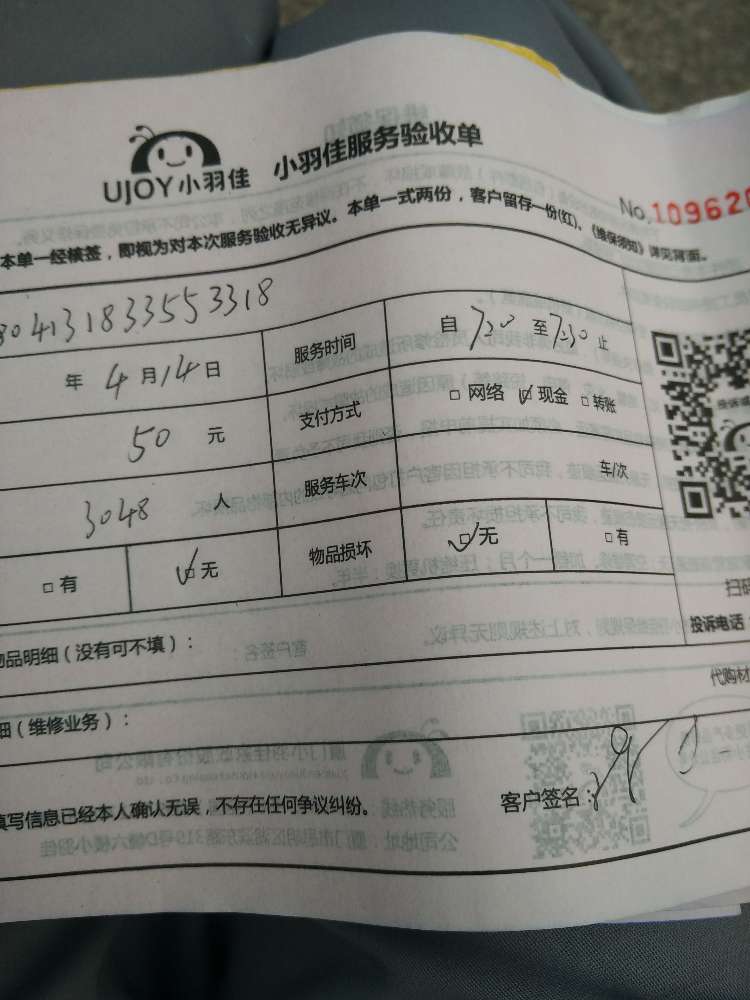 UJOY小羽佳 小羽佳服务验收单
No.109620
本单一经核签，即视为对本次服务验收无异议。本单一式两份，客户留存一份(红)。《维保须知》详见背面。
804131833553318
年 4 月 14 日 服务时间 自 7:20 至 7:30 止
50 元 支付方式 □网络 ☑现金 □转账
3048 人 服务车次 车/次
□有 ☑无 物品损坏 ☑无 □有
扫码
投诉电话
物品明细（没有可不填）：
代购材
细（维修业务）：
填写信息已经本人确认无误，不存在任何争议纠纷。 客户签名：